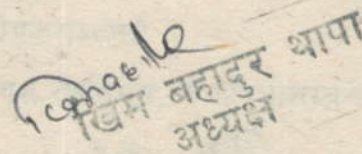 खिम बहादुर थापा
अध्यक्ष